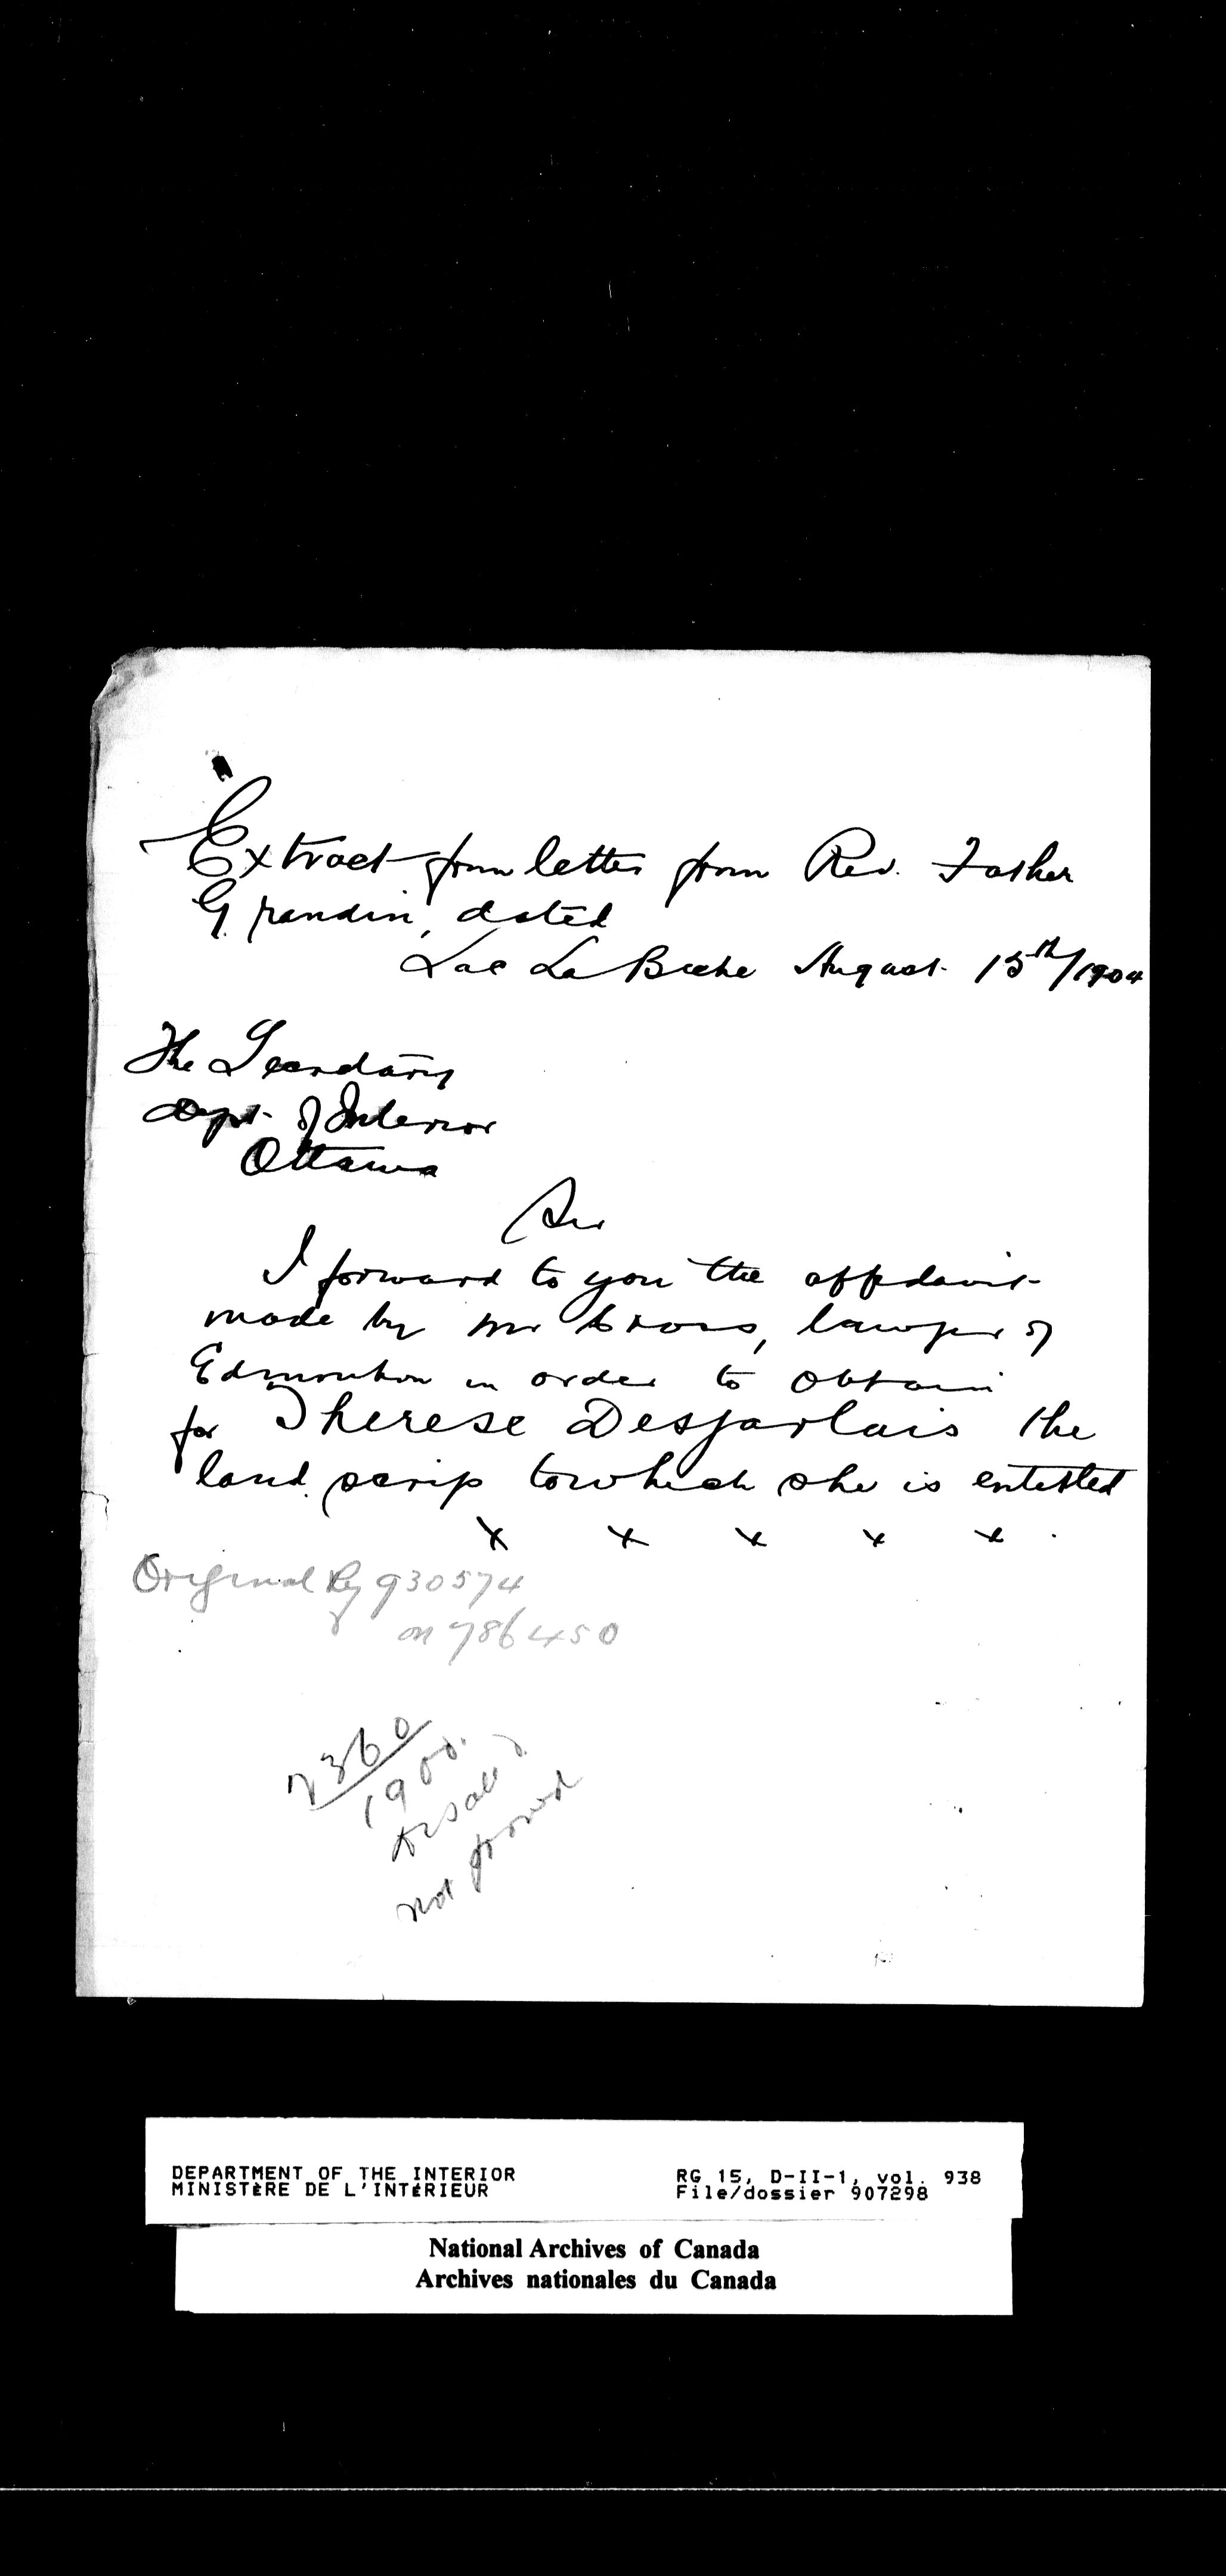 Extract from letter from Rev. Father
Grandin, dated
Lac La Biche August 15th/1904
The Secretary
Dept. of Interior
Ottawa
Sir
I forward to you the affidavit
made by Mr Cross, lawyer of
Edmonton in order to obtain
for Therese Desjarlais the
land scrip to which she is entitled
x x x x x
Original Reg 930574
on 786450
2360
1900.
not proved
DEPARTMENT OF THE INTERIOR
MINISTÈRE DE L'INTÉRIEUR
RG 15, D-II-1, vol. 938
File/dossier 907298
National Archives of Canada
Archives nationales du Canada